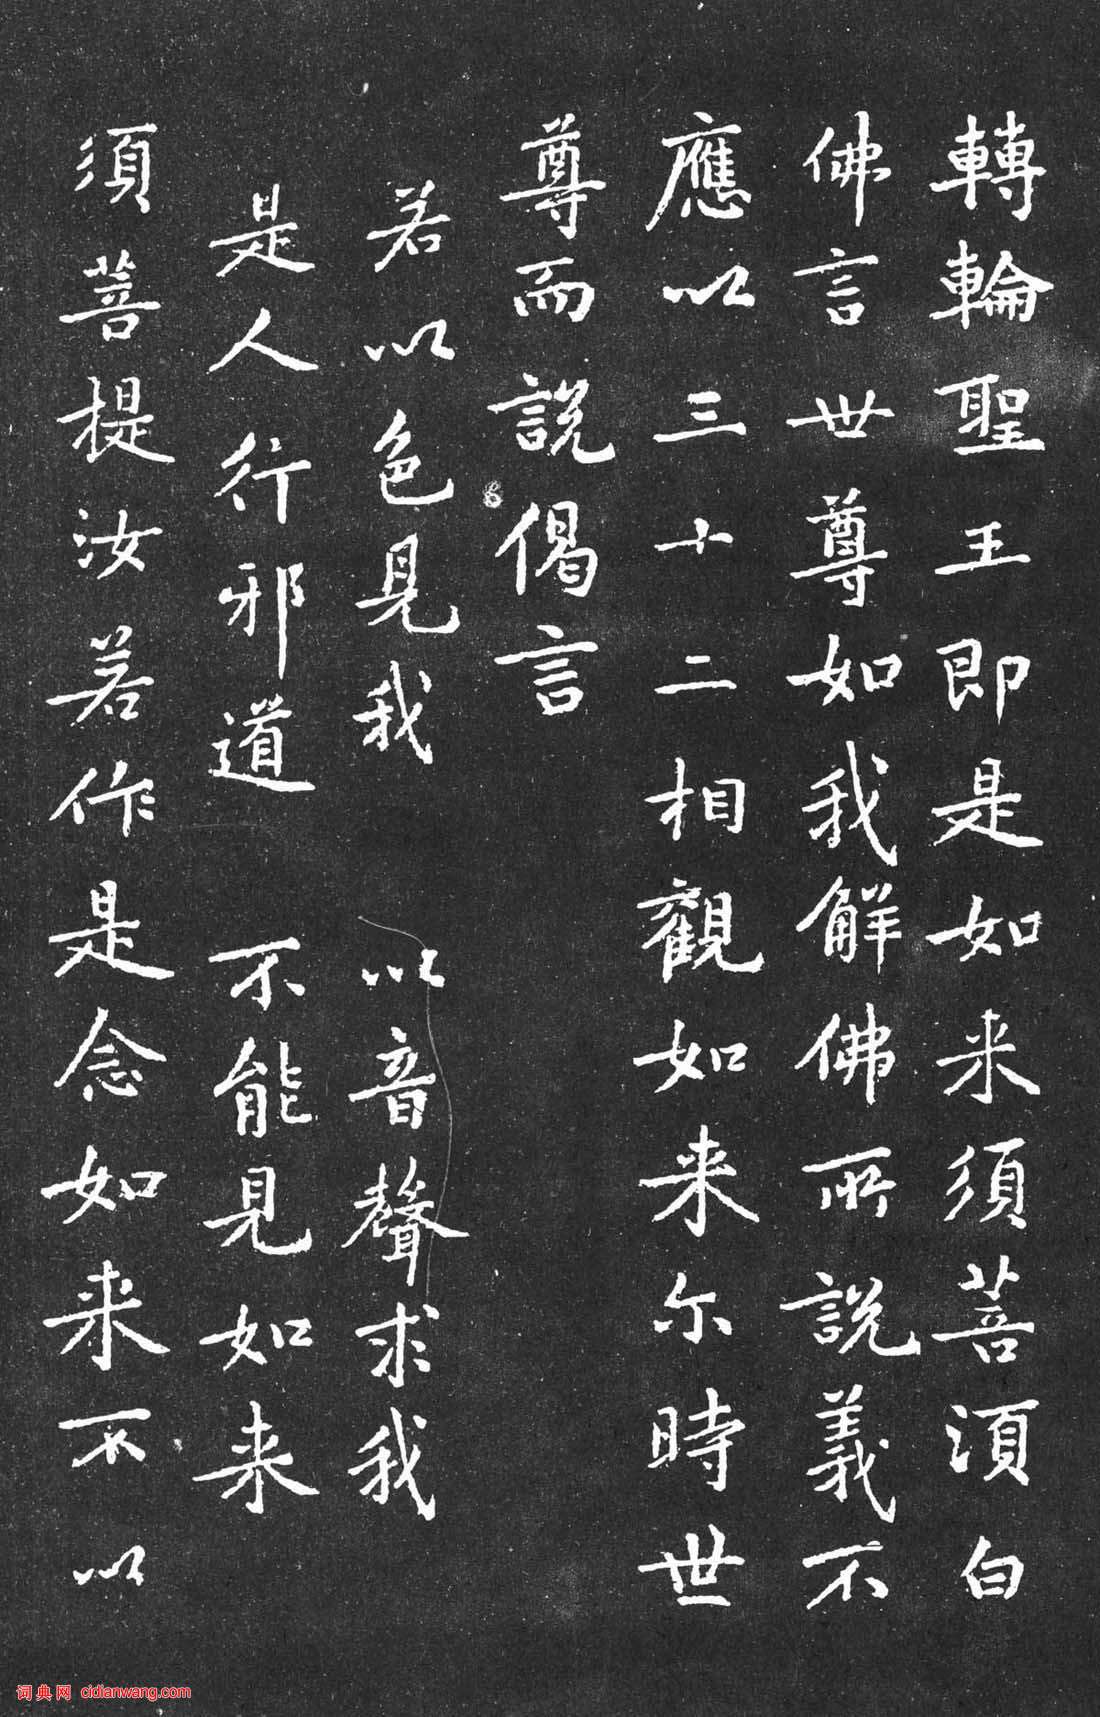 轉輪聖王即是如来須菩湏白
佛言世尊如我解佛所説義不
應以三十二相觀如来尒時世
尊而説偈言
若以色見我 以音聲求我
是人行邪道 不能見如来
須菩提汝若作是念如来不以
词典网 cidianwang.com